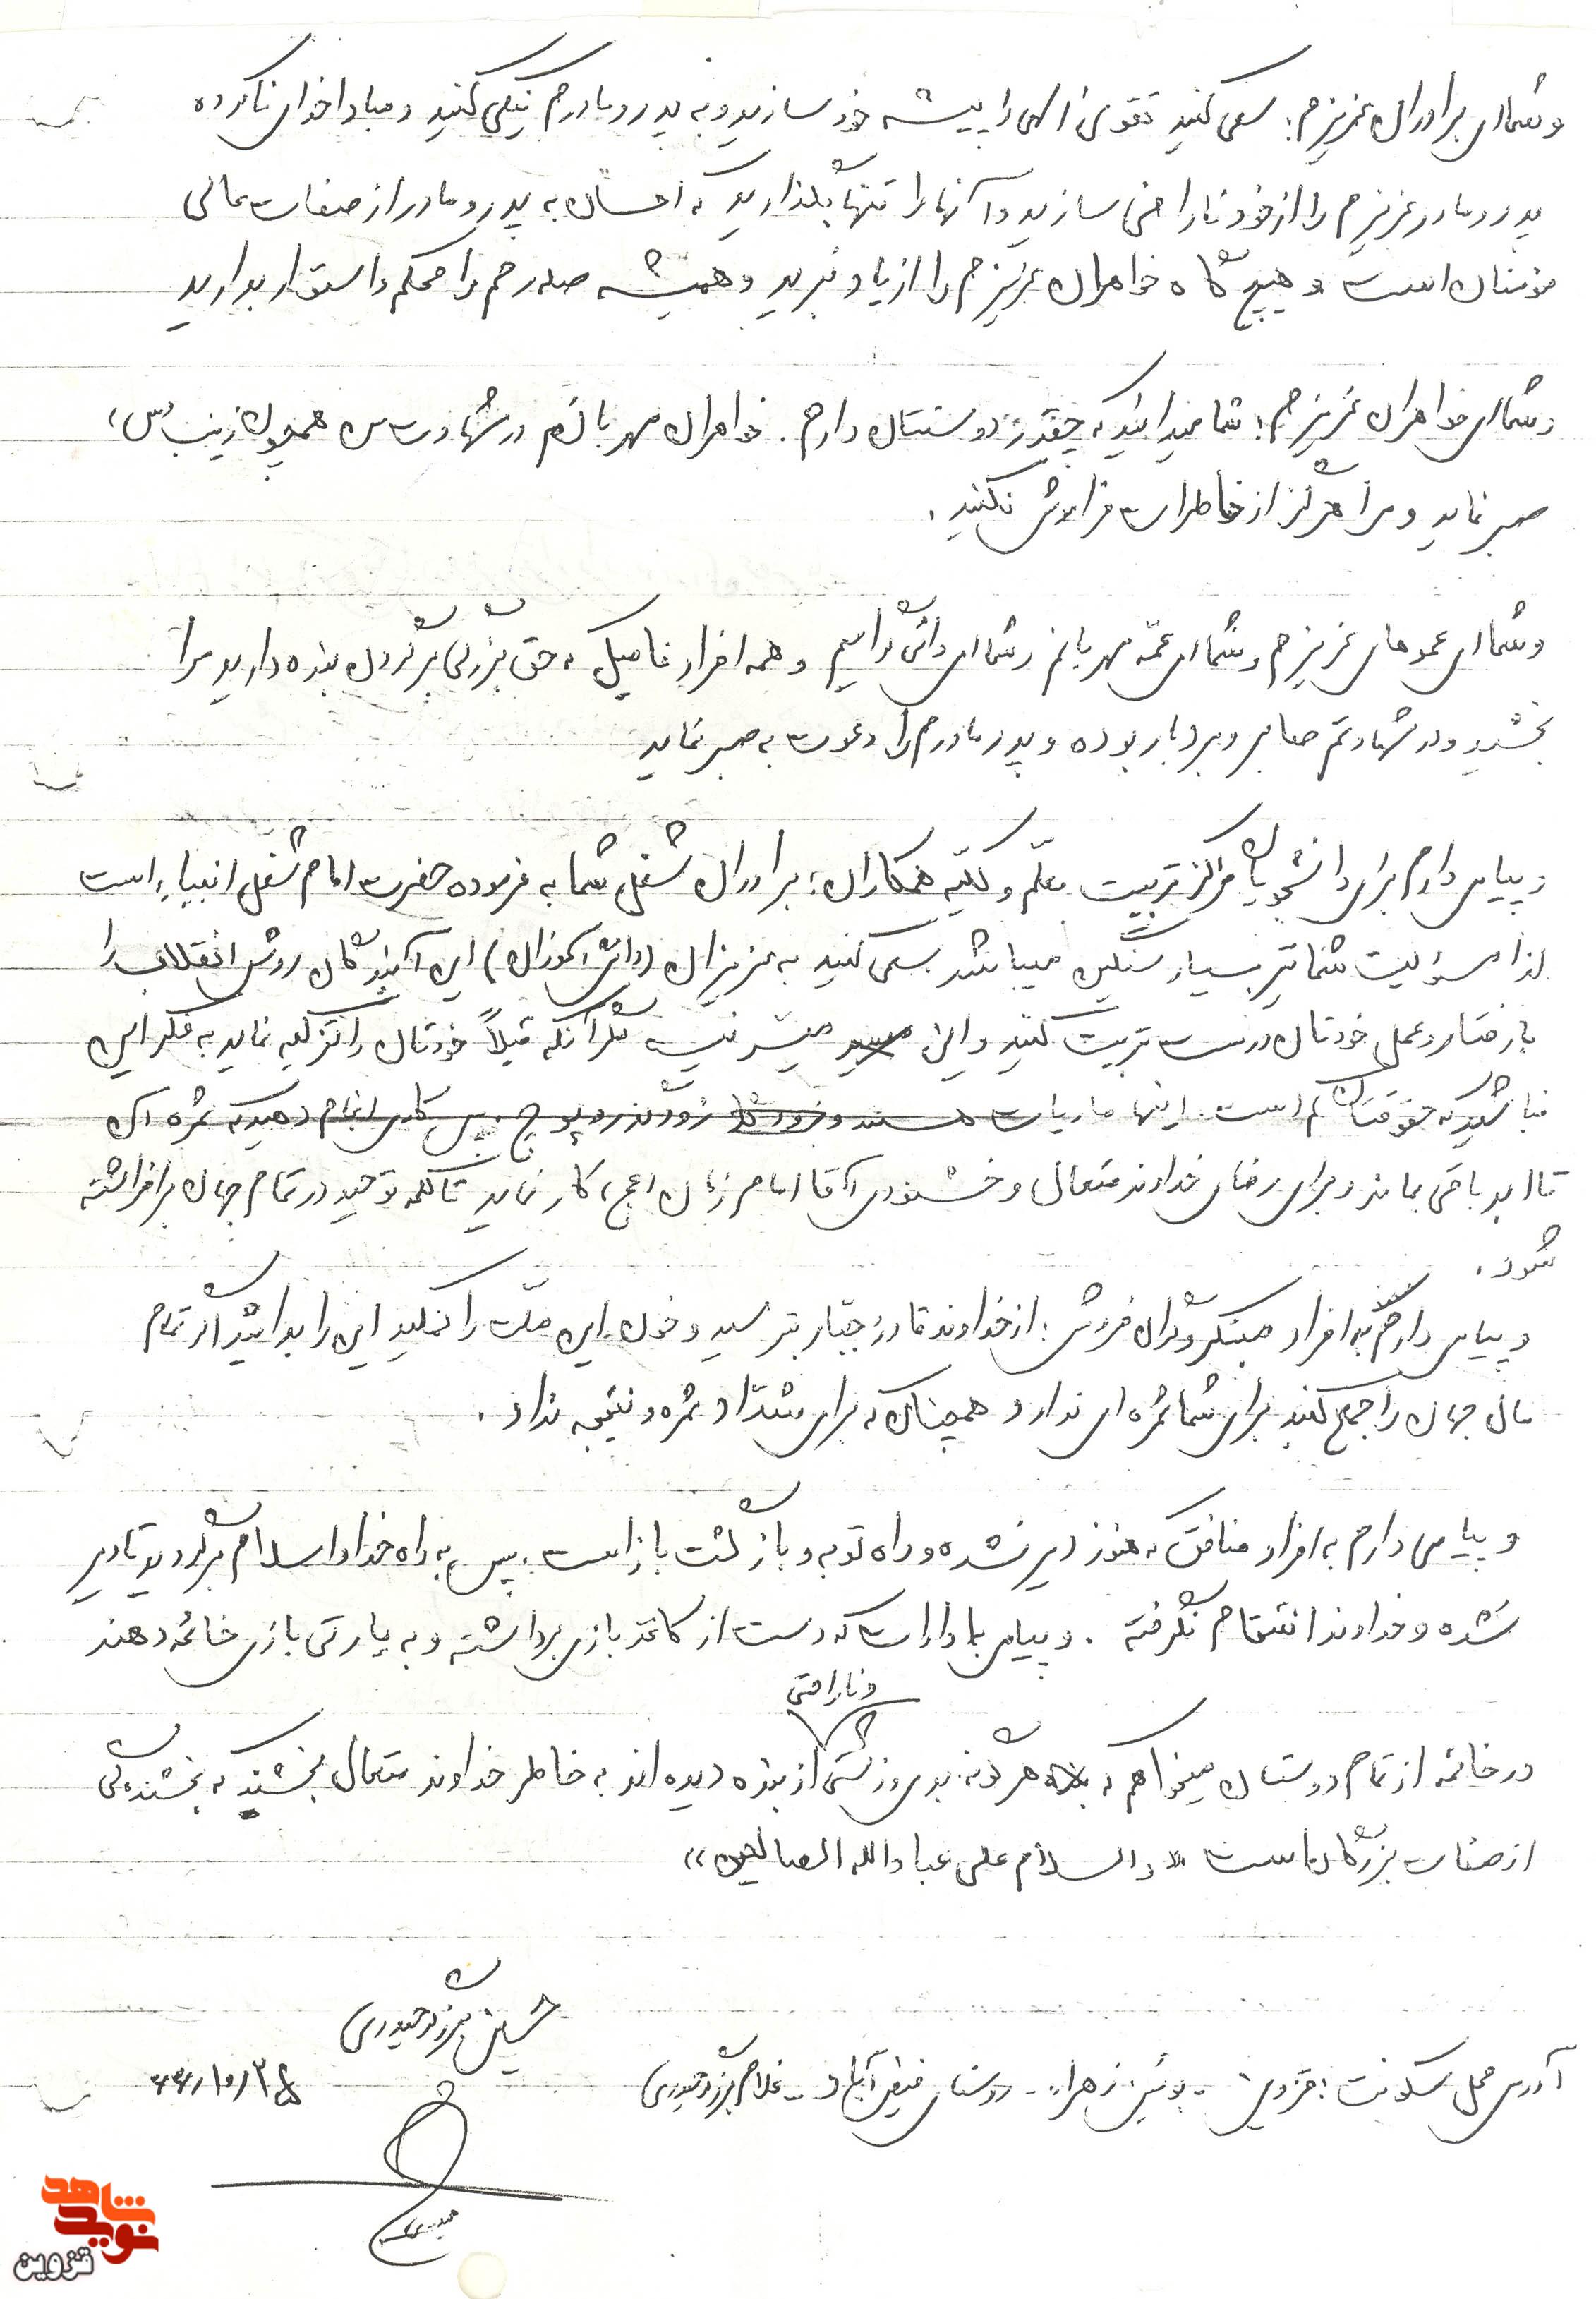 و شما ای برادران عزیزم؛ سعی کنید تقوی الهی را پیشه خود سازید و به پدر و مادرم نیکی کنید و مبادا خدای ناکرده
پدر و مادر عزیزم را از خود ناراضی سازید و آنها را تنها بگذارید که احسان به پدر و مادر از صفات عالی
مؤمنان است و هیچ گاه خواهران عزیزم را از یاد نبرید و همیشه صله رحم را محکم و استوار بدارید
و شما ای خواهران عزیزم؛ شما میدانید که چقدر دوستتان دارم. خواهران مهربانم در شهادت من همچون زینب (س)
صبر نماید و مرا هرگز از خاطرات فراموش نکنید.
و شما ای عموهای عزیزم و شما ای عمّه مهربانم و شما ای دائی و همه افراد فامیل که حق بزرگی بر گردن بنده دارید مرا
بخشید و در شهادتم صابر و بردبار بوده و پدر و مادرم را دعوت به صبر نماید
و پیامی دارم برای دانشجویان مراکز تربیت معلّم و کلیّه همکاران؛ برادران شغل شما به فرموده حضرت امام شغل انبیاء است
لذا مسؤلیت شما نیز بسیار سنگین میباشد سعی کنید به عزیزان (دانش آموزان) این آیندگان روش انقلاب را
با رفتار و عمل خودتان درست تربیت کنید و این میسر نیست مگر آنکه قبلاً خودتان را تزکیه نماید به فکر این
نباشید که حقوقتان کم است. اینها مادیات هستند و زودگذر و پوچ. پس کاری انجام دهید که ثمره آن
تا ابد باقی بماند و برای رضای خداوند متعال و خشنودی آقا امام زمان (عج) کار نماید تا کلمه توحید در تمام جهان برافراشته
شود.
و پیامی دارم به افراد محتکر و گران فروش: از خداوند قادر جبّار بترسید و خون این ملّت را نمکید این را بدانید اگر تمام
مال جهان را جمع کنید برای شما ثمره ای ندارد همچنان که برای شدّاد ثمره و نتیجه نداد.
و پیامی دارم به افراد منافق که هنوز دیر نشده و راه توبه و بازگشت باز است. پس به راه خدا و اسلام برگردید تا دیر
نشده و خداوند انتقام نگرفته. و پیامی با ادارات که دست از کاغذ بازی برداشته و به پارتی بازی خاتمه دهند
و ناراحتی
در خاتمه از تمام دوستان میخواهم که هرگونه بدی و زشتی از بنده دیده اند به خاطر خداوند متعال بخشید که بخشندگی
از صفات بزرگان است «والسلام علی عبادالله الصالحین»
حسین برزگر حیدری
آدرس محل سکونت: قزوین - بوئین زهرا - روستای فیض آباد - غلام برزگر حیدری
۶۴/۱۰/۲۵
نوید شاهد
قزوین